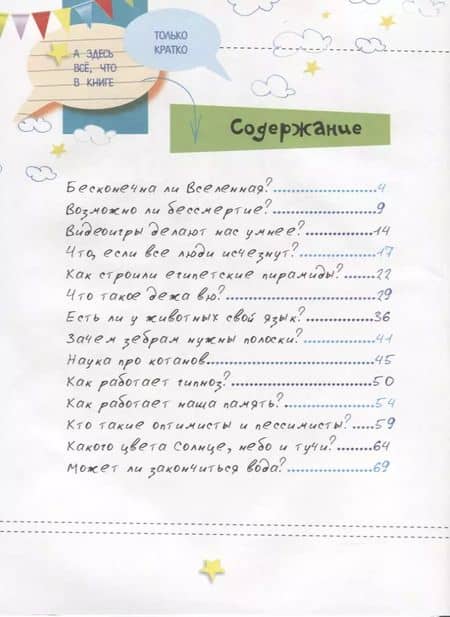 ТОЛЬКО
КРАТКО
А ЗДЕСЬ
ВСЁ, ЧТО
В КНИГЕ
Содержание
Бесконечна ли Вселенная?..................4
Возможно ли бессмертие?..................9
Видеоигры делают нас умнее?............14
Что, если все люди исчезнут?............17
Как строили египетские пирамиды?......22
Что такое дежа вю?..........................29
Есть ли у животных свой язык?..........36
Зачем зебрам нужны полоски?............41
Наука про котанов............................45
Как работает гипноз?........................50
Как работает наша память?................54
Кто такие оптимисты и пессимисты?.....59
Какого цвета Солнце, небо и тучи?.......64
Может ли закончиться вода?..............69